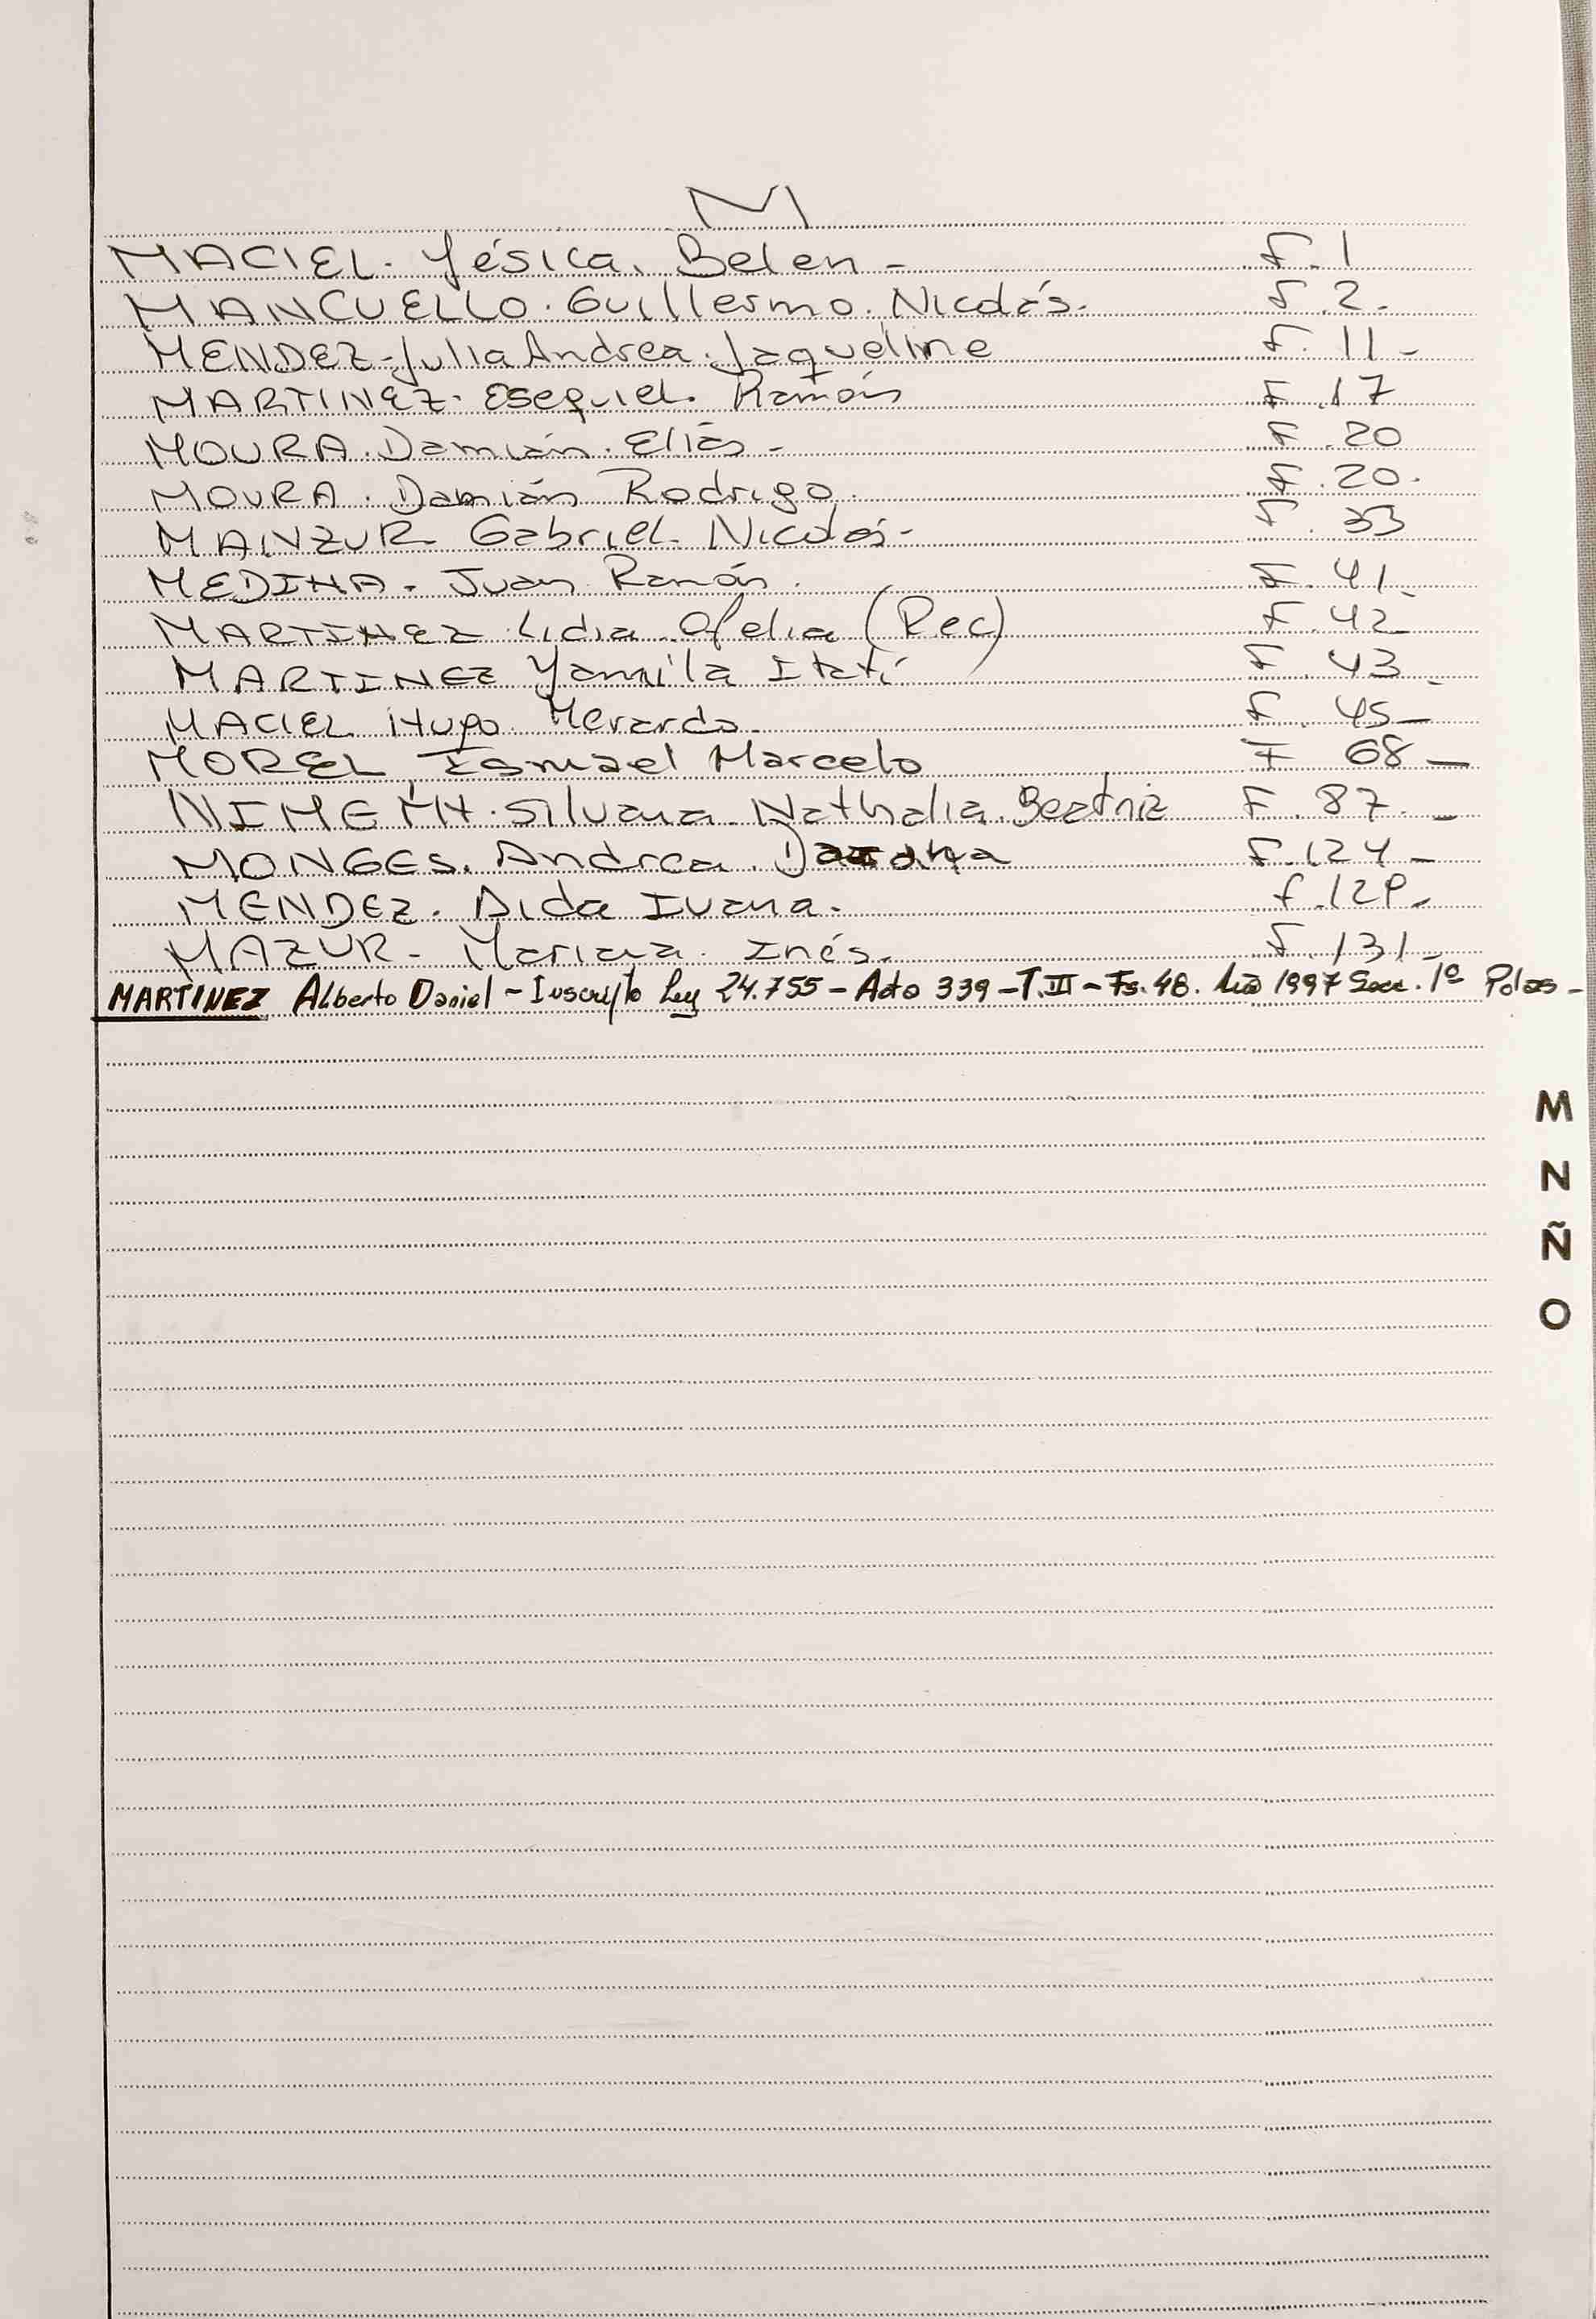 M
MACIEL. Yésica. Belen - F. 1
MANCUELLO. Guillermo. Nicolás. F. 2.
MENDEZ - Julia Andrea. Jaqueline F. 11 -
MARTINEZ. Esequiel. Ramón F. 17
MOURA. Damián. Elías - F. 20
MOURA. Damián Rodrigo. F. 20.
MAINZUR Gabriel. Nicolás - F. 33
MEDINA. Juan Ramón. F. 41
MARTINEZ Lidia Ofelia (Rec) F. 42
MARTINEZ Yamila Itatí F. 43 -
MACIEL Hugo. Merardo. F. 45 -
MOREL Ismael Marcelo F 68 -
Silvana. Nathalia. Beatriz F. 87. -
MONGES. Andrea. F. 124 -
MENDEZ. Aida Ivana. F. 129 -
MAZUR - Mariana. Inés. F. 131 -
MARTINEZ Alberto Daniel - Inscripto Ley 24.755 - Acto 339 - T. III - Fs. 48. Año 1997 Secc. 1ª Pdas -
M
N
Ñ
O